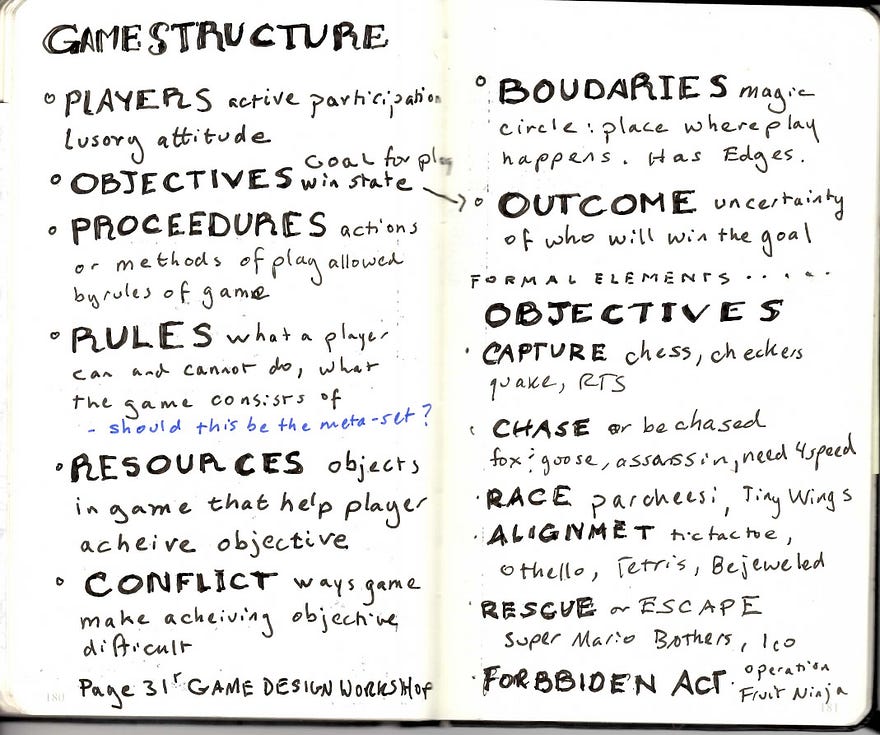 GAME STRUCTURE
PLAYERS active participation
lusory attitude
Goal for play
OBJECTIVES win state
PROCEEDURES actions
or methods of play allowed
by rules of game
RULES what a player
can and cannot do, what
the game consists of
- should this be the meta-set?
RESOURCES objects
in game that help player
acheive objective
CONFLICT ways game
make acheiving objective
difficult
Page 31 GAME DESIGN WORKSHOP
180
BOUDARIES magic
circle: place where play
happens. Has Edges.
OUTCOME uncertainty
of who will win the goal
FORMAL ELEMENTS .....
OBJECTIVES
CAPTURE chess, checkers
quake, RTS
CHASE or be chased
fox & goose, assassin, need 4 speed
RACE parcheesi, Tiny Wings
ALIGNMET tictactoe,
othello, Tetris, Bejeweled
RESCUE or ESCAPE
Super Mario Brothers, Ico
FORBBIDEN ACT. operation
Fruit Ninja
181